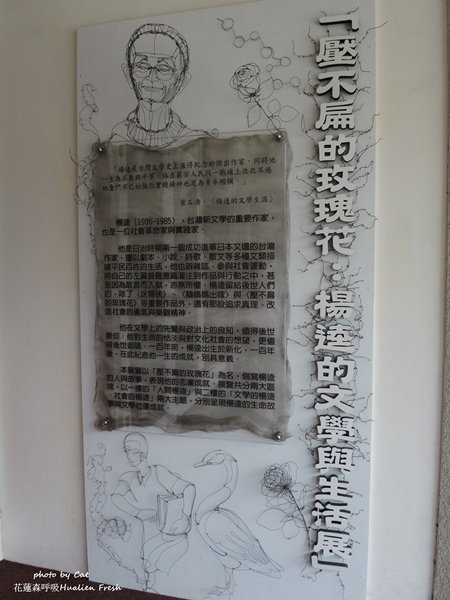 「壓不扁的玫瑰花：楊逵的文學與生活展」
「楊逵是台灣文學史上值得紀念的傑出作家，同時他
一生為正義與平等，站在窮苦人民同一戰線上孜孜不倦
地奮鬥不已的強烈實踐精神也是為青年楷模。」
葉石濤，《楊逵的文學生涯》
楊逵（1906-1985），台灣新文學的重要作家，
也是一位社會革命家與實踐家。
他是日治時期第一個成功進軍日本文壇的台灣
作家，雖以劇本、小說、詩歌、散文等多種文類描
繪平民百姓的生活，他也辦雜誌、參與社會運動，
將自己的左翼普羅意識灌注到作品與行動之中，甚
至因為敢言而入獄，亦無所懼。楊逵留給後世人們
的，除了《送報伕》、《鵝媽媽出嫁》與《壓不扁
的玫瑰花》等重要作品外，還有那股追求真理、改
造社會的勇氣與樂觀精神。
他在文學上的先覺與政治上的良知，值得後世
景仰；他對生命的恬淡與對文化社會的想望，更值
得後世迴響。一百年前，楊逵出生於新化，一百年
後，在此紀念他一生的成就，別具意義。
本展覽以「壓不扁的玫瑰花」為名，側寫楊逵
的人與故事，表現他的志業成就。展覽共分兩大區
塊，以一樓的「人間楊逵」與二樓的「文學的楊逵
、社會的楊逵」兩大主題，分別呈現楊逵的生命故
事與文學社運成就。
photo by Cat
花蓮森呼吸Hualien Fresh